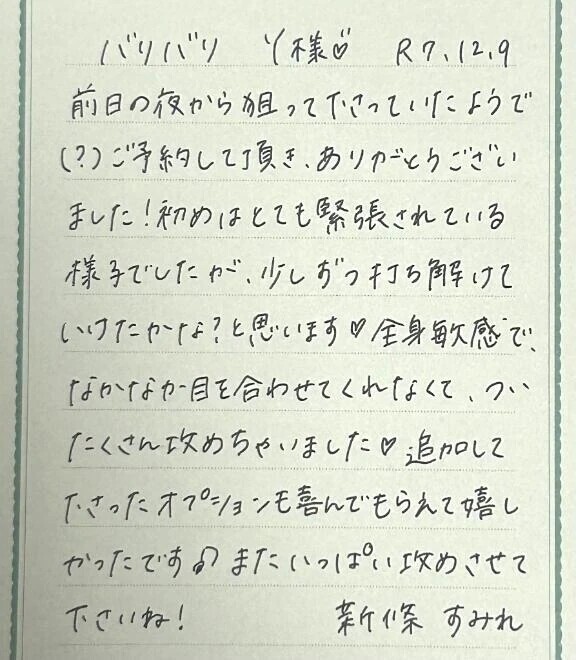 バリバリ Y様♡ R7.12.9
前日の夜から狙って下さっていたようで
(?)ご予約して頂き、ありがとうござい
ました!初めはとても緊張されている
様子でしたが、少しずつ打ち解けて
いけたかな?と思います♡全身敏感で、
なかなか目を合わせてくれなくて、つい
たくさん攻めちゃいました♡追加して
下さったオプションも喜んでもらえて嬉し
かったです♪またいっぱい攻めさせて
下さいね! 新條 すみれ